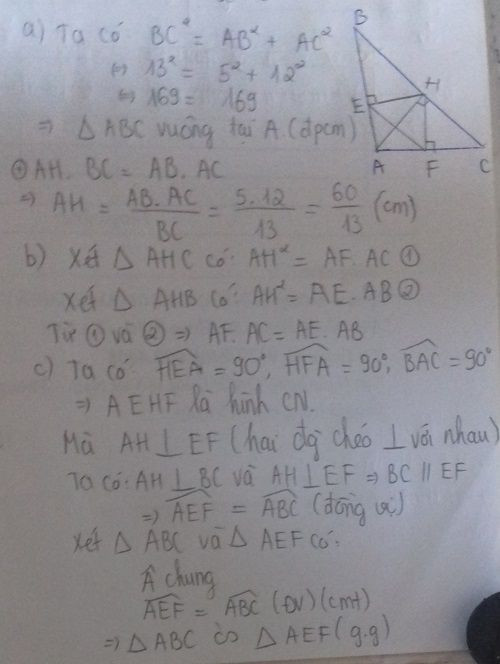 a) Ta có BC² = AB² + AC²
⇔ 13² = 5² + 12²
⇔ 169 = 169
⇒ △ ABC vuông tại A. (đpcm)
⊕ AH. BC = AB. AC
⇒ AH = AB.AC/BC = 5.12/13 = 60/13 (cm)
b) Xét △ AHC có: AH² = AF. AC ①
Xét △ AHB có: AH² = AE. AB ②
Từ ① và ② ⇒ AF. AC = AE. AB
c) Ta có: HEA = 90°, HFA = 90°, BAC = 90°
⇒ AEHF là hình CN.
Mà AH ⊥ EF (hai đg chéo ⊥ với nhau)
Ta có: AH ⊥ BC và AH ⊥ EF ⇒ BC // EF
⇒ AEF = ABC (đồng vị)
Xét △ ABC và △ AEF có:
Â chung
AEF = ABC (ĐV) (cmt)
⇒ △ABC ∽ △AEF (g.g)
B
E
H
A
F
C